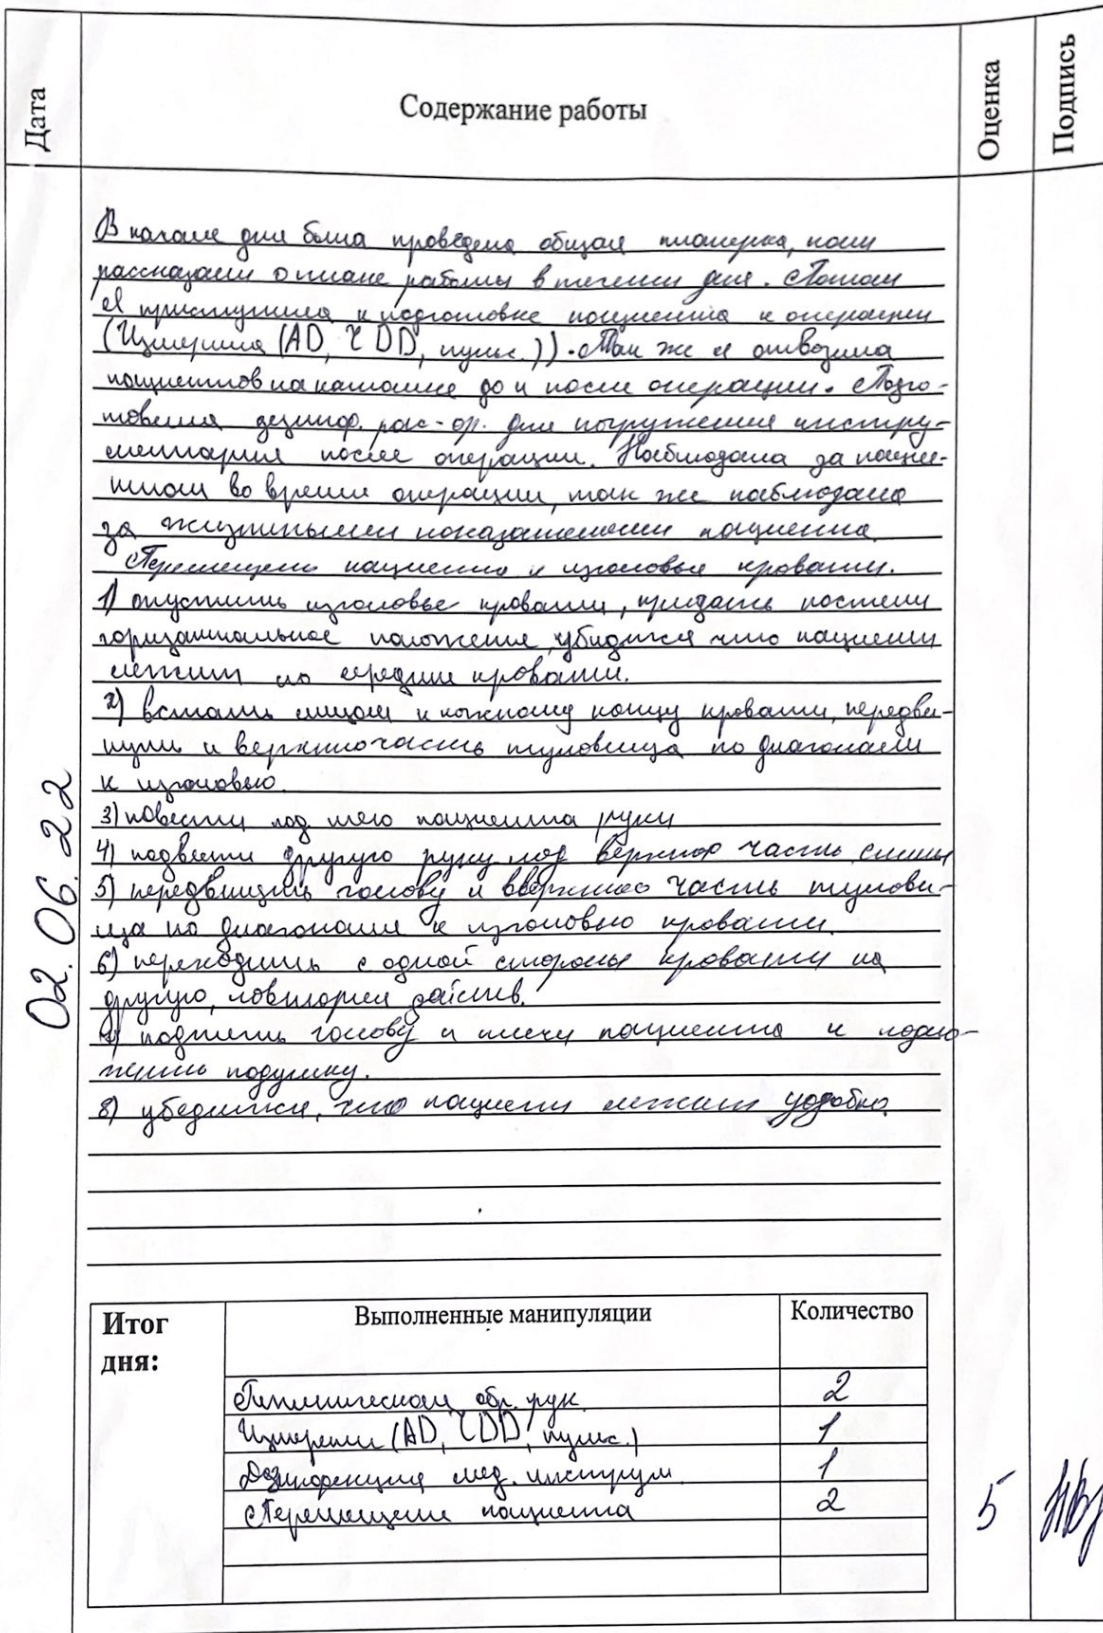 Дата
Содержание работы
Оценка
Подпись
02.06.22
В начале дня была проведена общая планерка, нам
рассказали о плане работы в течении дня. Потом
я приступила к подготовке пациента к операции
(Измерила (AD, ЧДД, пульс.)). Так же я отвозила
пациентов на каталке до и после операции. Подго-
товила дезинф. рас-ор. для погружения инстру-
ментария после операции. Наблюдала за пацие-
нтом во время операции, так же наблюдала
за жизнеными показателями пациента.
Перемещени пациента к изголовье кровати.
1) опустить изголовье кровати, придать постели
горизантальное положение, убидится что пациент
лежит по середине кровати.
2) встать лицом к ножному концу кровати, передви-
нуть и верхнию часть туловища по диагонали
к изголовью.
3) повести под шею пациента руки
4) подвести другую руку под верхнюю часть спины
5) передвинуть голову и вверхнюю часть тулови-
ща по диагонали к изголовью кровати.
6) переходить с одной стороны кровати на
другую, повторяя дейтив.
7) поднять голову и плечи пациента и подло-
жить подушку.
8) убедится, что пациент лежит удобно.
Итог дня:
Выполненные манипуляции
Количество
Гигиеническая обр. рук 2
Измерени (AD, ЧДД, пульс.) 1
Дезинфекция мед. инструм. 1
Перемещение пациента 2
5